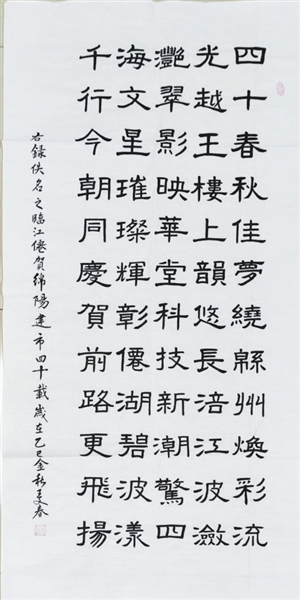 四十春秋佳夢繞緜州煥彩流
光越王樓上韻悠長涪江波瀲
灩翠影映華堂科技新潮驚四
海文星璀璨輝彰僊湖碧波漾
千行今朝同慶賀前路更飛揚
右錄佚名之臨江僊賀綿陽建市四十載歲在乙巳金秋春